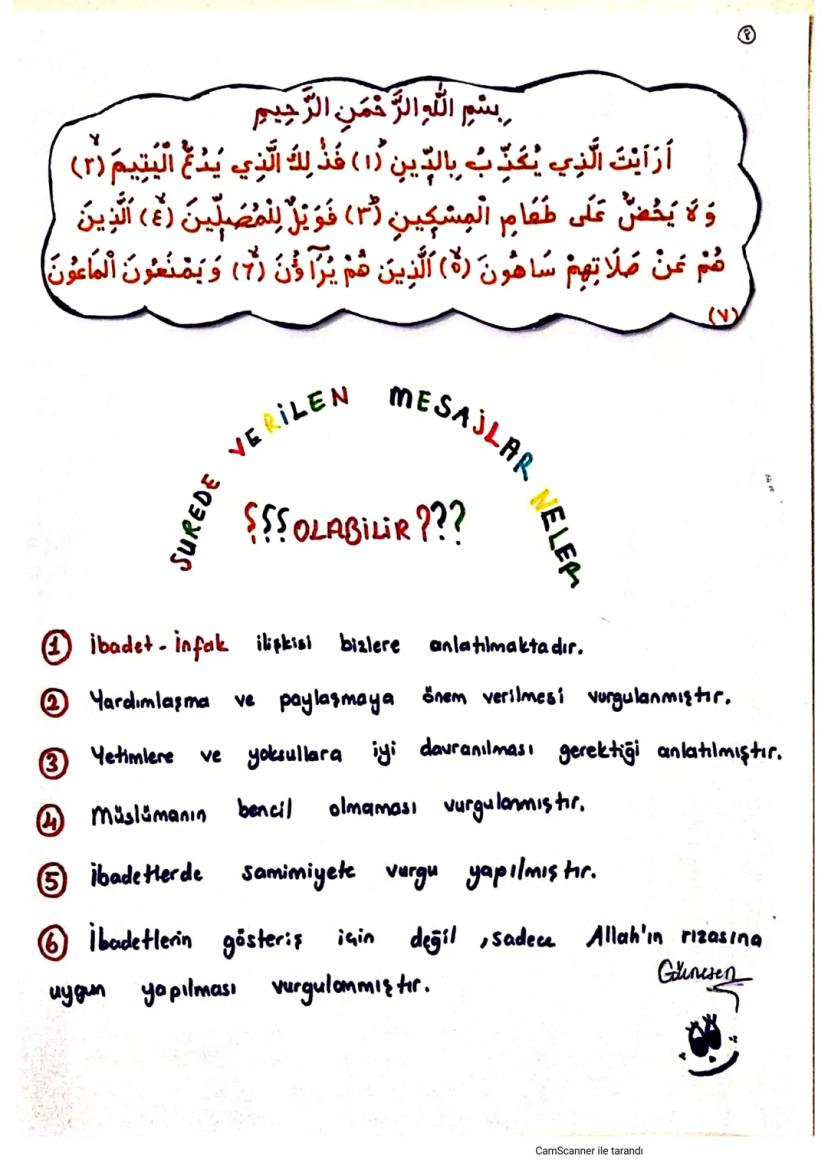 ٩
بِسْمِ اللّٰهِ الرَّحْمٰنِ الرَّحِيمِ
أَرَأَيْتَ الَّذِي يُكَذِّبُ بِالدِّينِ (١) فَذٰلِكَ الَّذِي يَدُعُّ الْيَتِيمَ (٢)
وَلَا يَحُضُّ عَلٰى طَعَامِ الْمِسْكِينِ (٣) فَوَيْلٌ لِلْمُصَلِّينَ (٤) اَلَّذِينَ
هُمْ عَنْ صَلَاتِهِمْ سَاهُونَ (٥) اَلَّذِينَ هُمْ يُرَآؤُنَ (٦) وَيَمْنَعُونَ الْمَاعُونَ
(٧)
SUREDE VERİLEN MESAJLAR NELER
??? OLABİLİR ???
1 İbadet - İnfak ilişkisi bizlere anlatılmaktadır.
2 Yardımlaşma ve paylaşmaya önem verilmesi vurgulanmıştır.
3 Yetimlere ve yoksullara iyi davranılması gerektiği anlatılmıştır.
4 Müslümanın bencil olmaması vurgulanmıştır.
5 İbadetlerde samimiyete vurgu yapılmıştır.
6 İbadetlerin gösteriş için değil, sadece Allah'ın rızasına
uygun yapılması vurgulanmıştır.
CamScanner ile tarandı